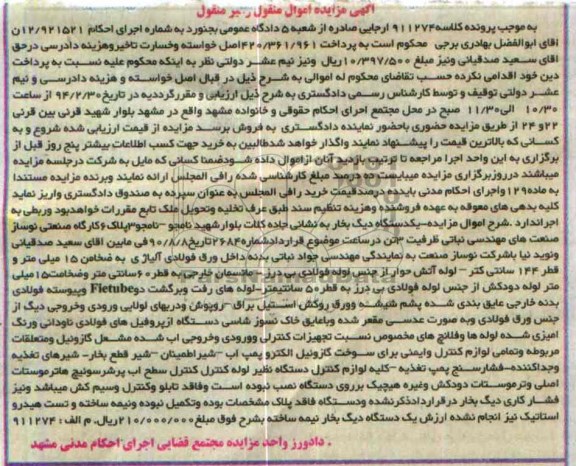 آگهی مزایده اموال منقول و غیر منقول
به موجب پرونده کلاسه ۹۱۱۲۷۴ ارجایی صادره از شعبه ۵ دادگاه عمومی بجنورد به شماره اجرای احکام ۱۲/۹۲۱۵۲۱ن
اقای ابوالفضل بهادری برجی محکوم است به پرداخت ۴۲۰/۳۶۱/۹۶۱ اصل خواسته وخسارت تاخیر وهزینه دادرسی درحق
اقای سعید صدقیانی ونیز مبلغ ۱۰/۳۹۷/۵۰۰ ریال ونیز نیم عشر دولتی نظر به اینکه محکوم علیه نسبت به پرداخت
دین خود اقدامی نکرده حسب تقاضای محکوم له اموالی به شرح ذیل در قبال اصل خواسته و هزینه دادرسی و نیم
عشر دولتی توقیف و توسط کارشناس رسمی دادگستری به شرح ذیل ارزیابی و مقررگردیده در تاریخ ۹۴/۲/۳۰ از ساعت
۱۰/۳۰ الی ۱۱/۳۰ صبح در محل مجتمع اجرای احکام حقوقی و خانواده مشهد واقع در مشهد بلوار شهید قرنی بین قرنی
۲۲ و ۲۴ از طریق مزایده حضوری باحضور نماینده دادگستری به فروش برسد مزایده از قیمت ارزیابی شده شروع و به
کسانی که بالاترین قیمت را پیشنهاد نمایند واگذار خواهد شد طالبین به خرید جهت کسب اطلاعات بیشتر پنج روز قبل از
برگزاری به این واحد اجرا مراجعه تا ترتیب بازدید آنان ازاموال داده شود ضمنا کسانی که مایل به شرکت درجلسه مزایده
میباشند درروز برگزاری مزایده میبایست ده درصد مبلغ کارشناسی شده رافی المجلس ارائه نمایند وبرنده مزایده مستندا
به ماده ۱۲۹ واجرای احکام مدنی بایدده درصدقیمت خرید رافی المجلس به عنوان سپرده به صندوق دادگستری واریز نماید
کلیه بدهی های معوقه به عهده فروشنده وهزینه تنظیم سند طبق عرف تخلیه وتحویل ملک تابع مقررات خواهدبود وربطی به
اجراندارد .شرح اموال مزایده-یکدستگاه دیگ بخار به نشانی جاده کلات بلوار شهید نامجو -نامجو ۳ پلاک ۶ کارگاه صنعتی نوساز
صنعت های مهندسی نباتی ظرفیت ۳تن درساعت موضوع قراردادشماره ۲۶۸۴ تاریخ ۹۰/۸/۸ فی مابین اقای سعید صدقیانی
ونوید نیا باشرکت نوساز صنعت به نمایندگی مهندسی جواد نباتی بدنه داخل ورق فولادی آلیاژی به ضخامن ۱۵ میلی متر و
قطر ۱۴۴ سانتی کتر - لوله آتش خوار از جنس لوله فولادی بی درز - مانسمان خارجی به قطر ۶۰ سانتی متر وضخامت ۱۵ میلی
متر لوله دودکش از جنس لوله فولادی بی درز به قطر ۵۰ سانتیمتر-لوله های رفت وبرگشت دود Fietube وپیوسته فولادی
بدنه خارجی عایق بندی شده پشم شیشه وورق روکش استیل براق -روپوش ودربهای لولایی ورودی وخروجی دیگ از
جنس ورق فولادی وبه صورت عدسی مقعر شده وباعایق خاک نسوز شاسی دستگاه ازپروفیل های فولادی ناودانی ورنگ
امیزی شده لوله ها وفلانچ های مخصوص نسبت تجهیزات کنترلی وورودی وخروجی اب شده مشعل گازوئیل ومتعلقات
مربوطه وتمامی لوازم کنترل وایمنی برای سوخت گازوئیل الکترو پمپ اب -شیراطمینان -شیر قطع بخار- شیرهای تغذیه
وجداکننده-فشارسنج پمپ تغذیه -کلیه لوازم کنترل دستگاه نظیر لوله کنترل کنترل سطح اب پرشرسوئیچ هاترموستات
اصلی وترموستات دودکش وغیره هیچیک برروی دستگاه نصب نبوده است وفاقد تابلو وکنترل وسیم کش میباشد ونیز
فشار کاری دیگ بخار درقراردادذکرنشده ودستگاه فاقد پلاک مشخصات بوده وتکمیل نبوده ونیمه ساخته و تست هیدرو
استاتیک نیز انجام نشده ارزش یک دستگاه دیگ بخار نیمه ساخته بشرح فوق مبلغ ۲۱۰/۰۰۰/۰۰۰ ریال. م الف: ۹۱۱۲۷۴
. دادورز واحد مزایده مجتمع قضایی اجرای احکام مدنی مشهد